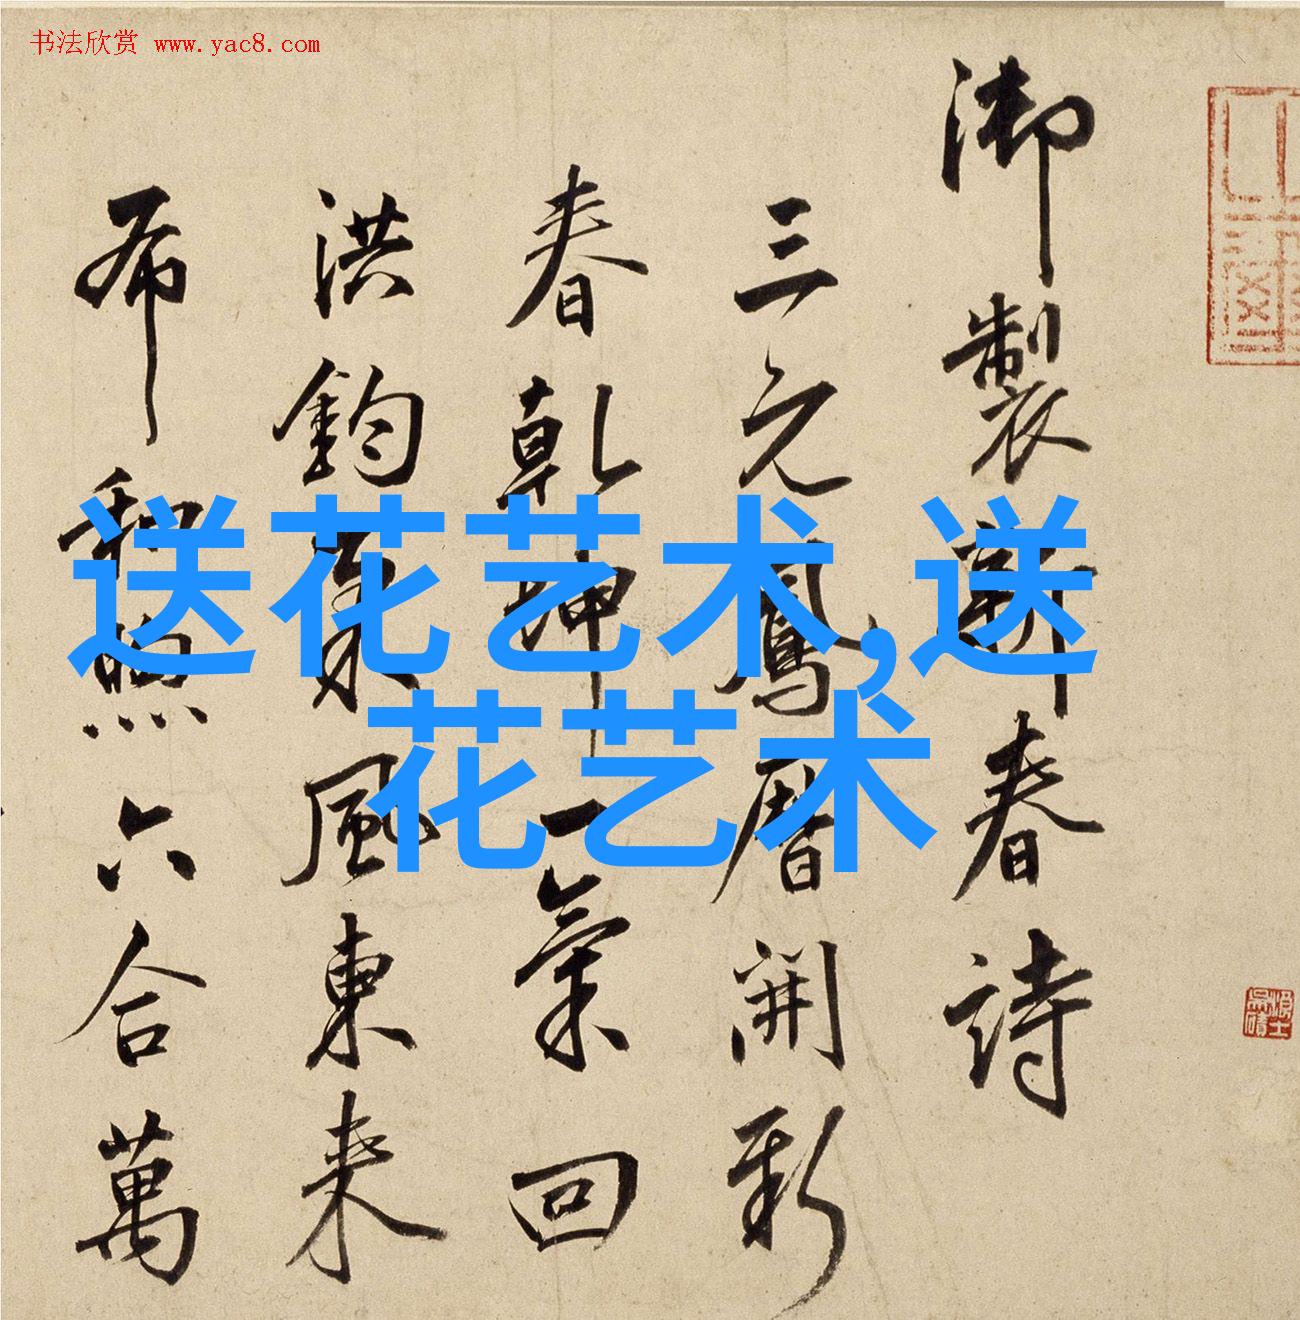 书法欣赏 www.yac8.com
送花艺术,送
花艺术
御製新春詩
三元鳳曆開新
春乾坤一氣回
洪鈞來風東来
布和煦六合萬